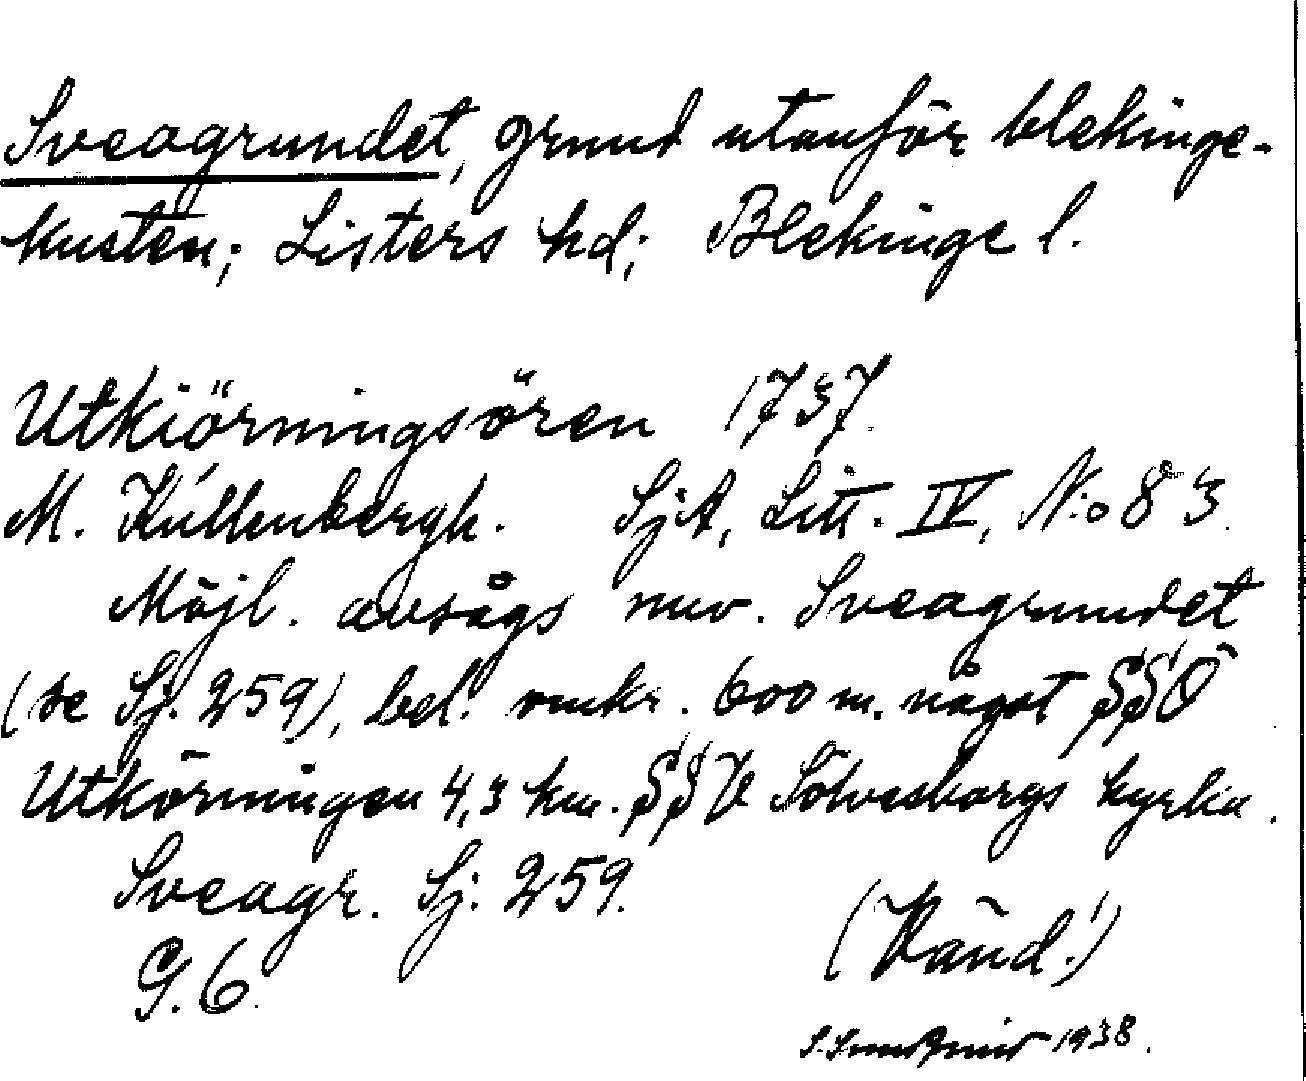 Sveagrundet, grund utanför blekinge-
kusten; Listers hd; Blekinge l.
Utkiörningsören 1737.
M. Kúllenbergh. SjA, Litt. IV, N:o 83.
Möjl. avsågs nuv. Sveagrundet
(se Sj. 259), bel. omkr. 600 m. något SSO
Utkörningen 4,3 km. SSV Sölvesborgs kyrka.
Sveagr. Sj. 259.
G. 6.
(Vänd!)
1938.